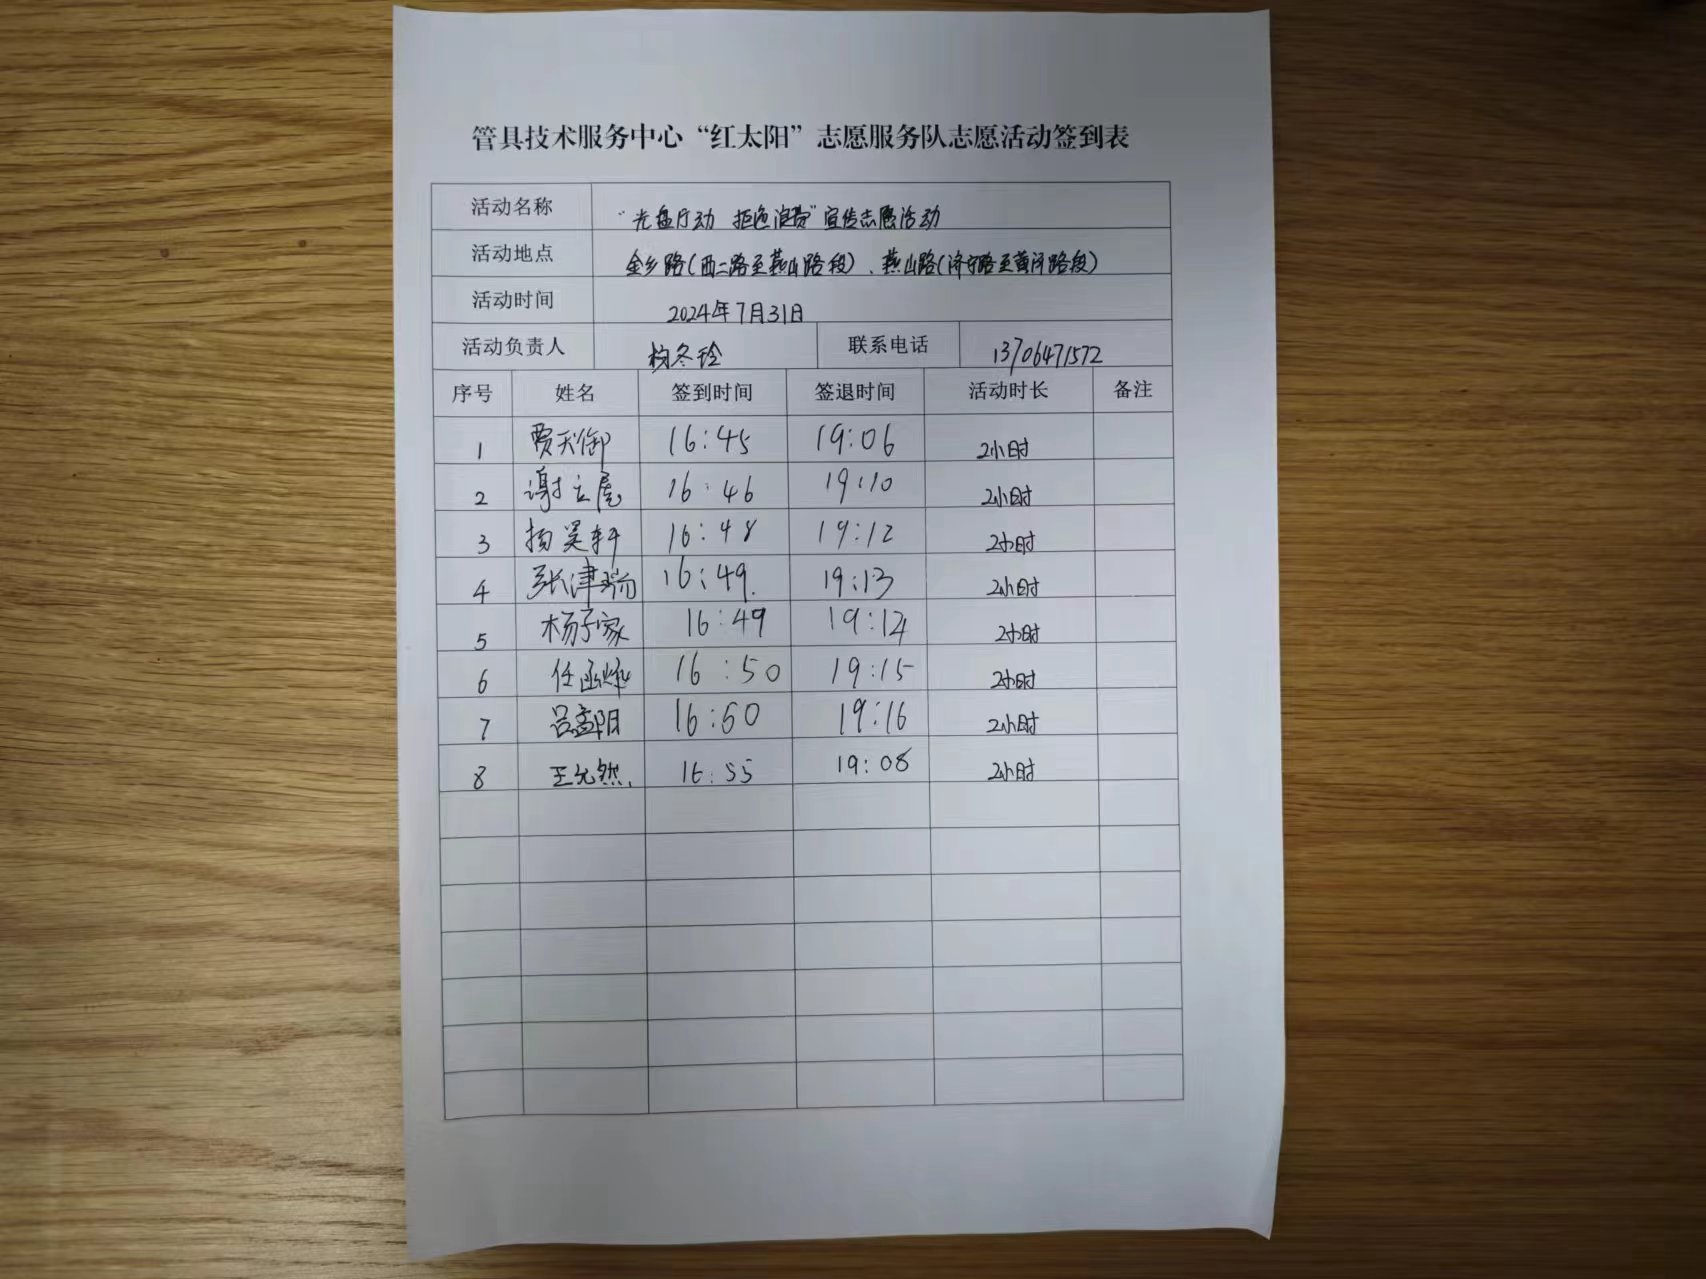 管具技术服务中心“红太阳”志愿服务队志愿活动签到表
活动名称 “光盘行动 拒绝浪费”宣传志愿活动
活动地点 金乡路(西二路至燕山路段)、燕山路(济宁路至黄河路段)
活动时间 2024年7月31日
活动负责人 杨冬玲 联系电话 13706471572
序号 姓名 签到时间 签退时间 活动时长 备注
1 贾天御 16:45 19:06 2小时
2 谢立虎 16:46 19:10 2小时
3 杨昊轩 16:48 19:12 2小时
4 张津瑞 16:49. 19:13 2小时
5 杨子家 16:49 19:14 2小时
6 任函烨 16:50 19:15 2小时
7 吕富阳 16:50 19:16 2小时
8 王允然. 16:55 19:08 2小时